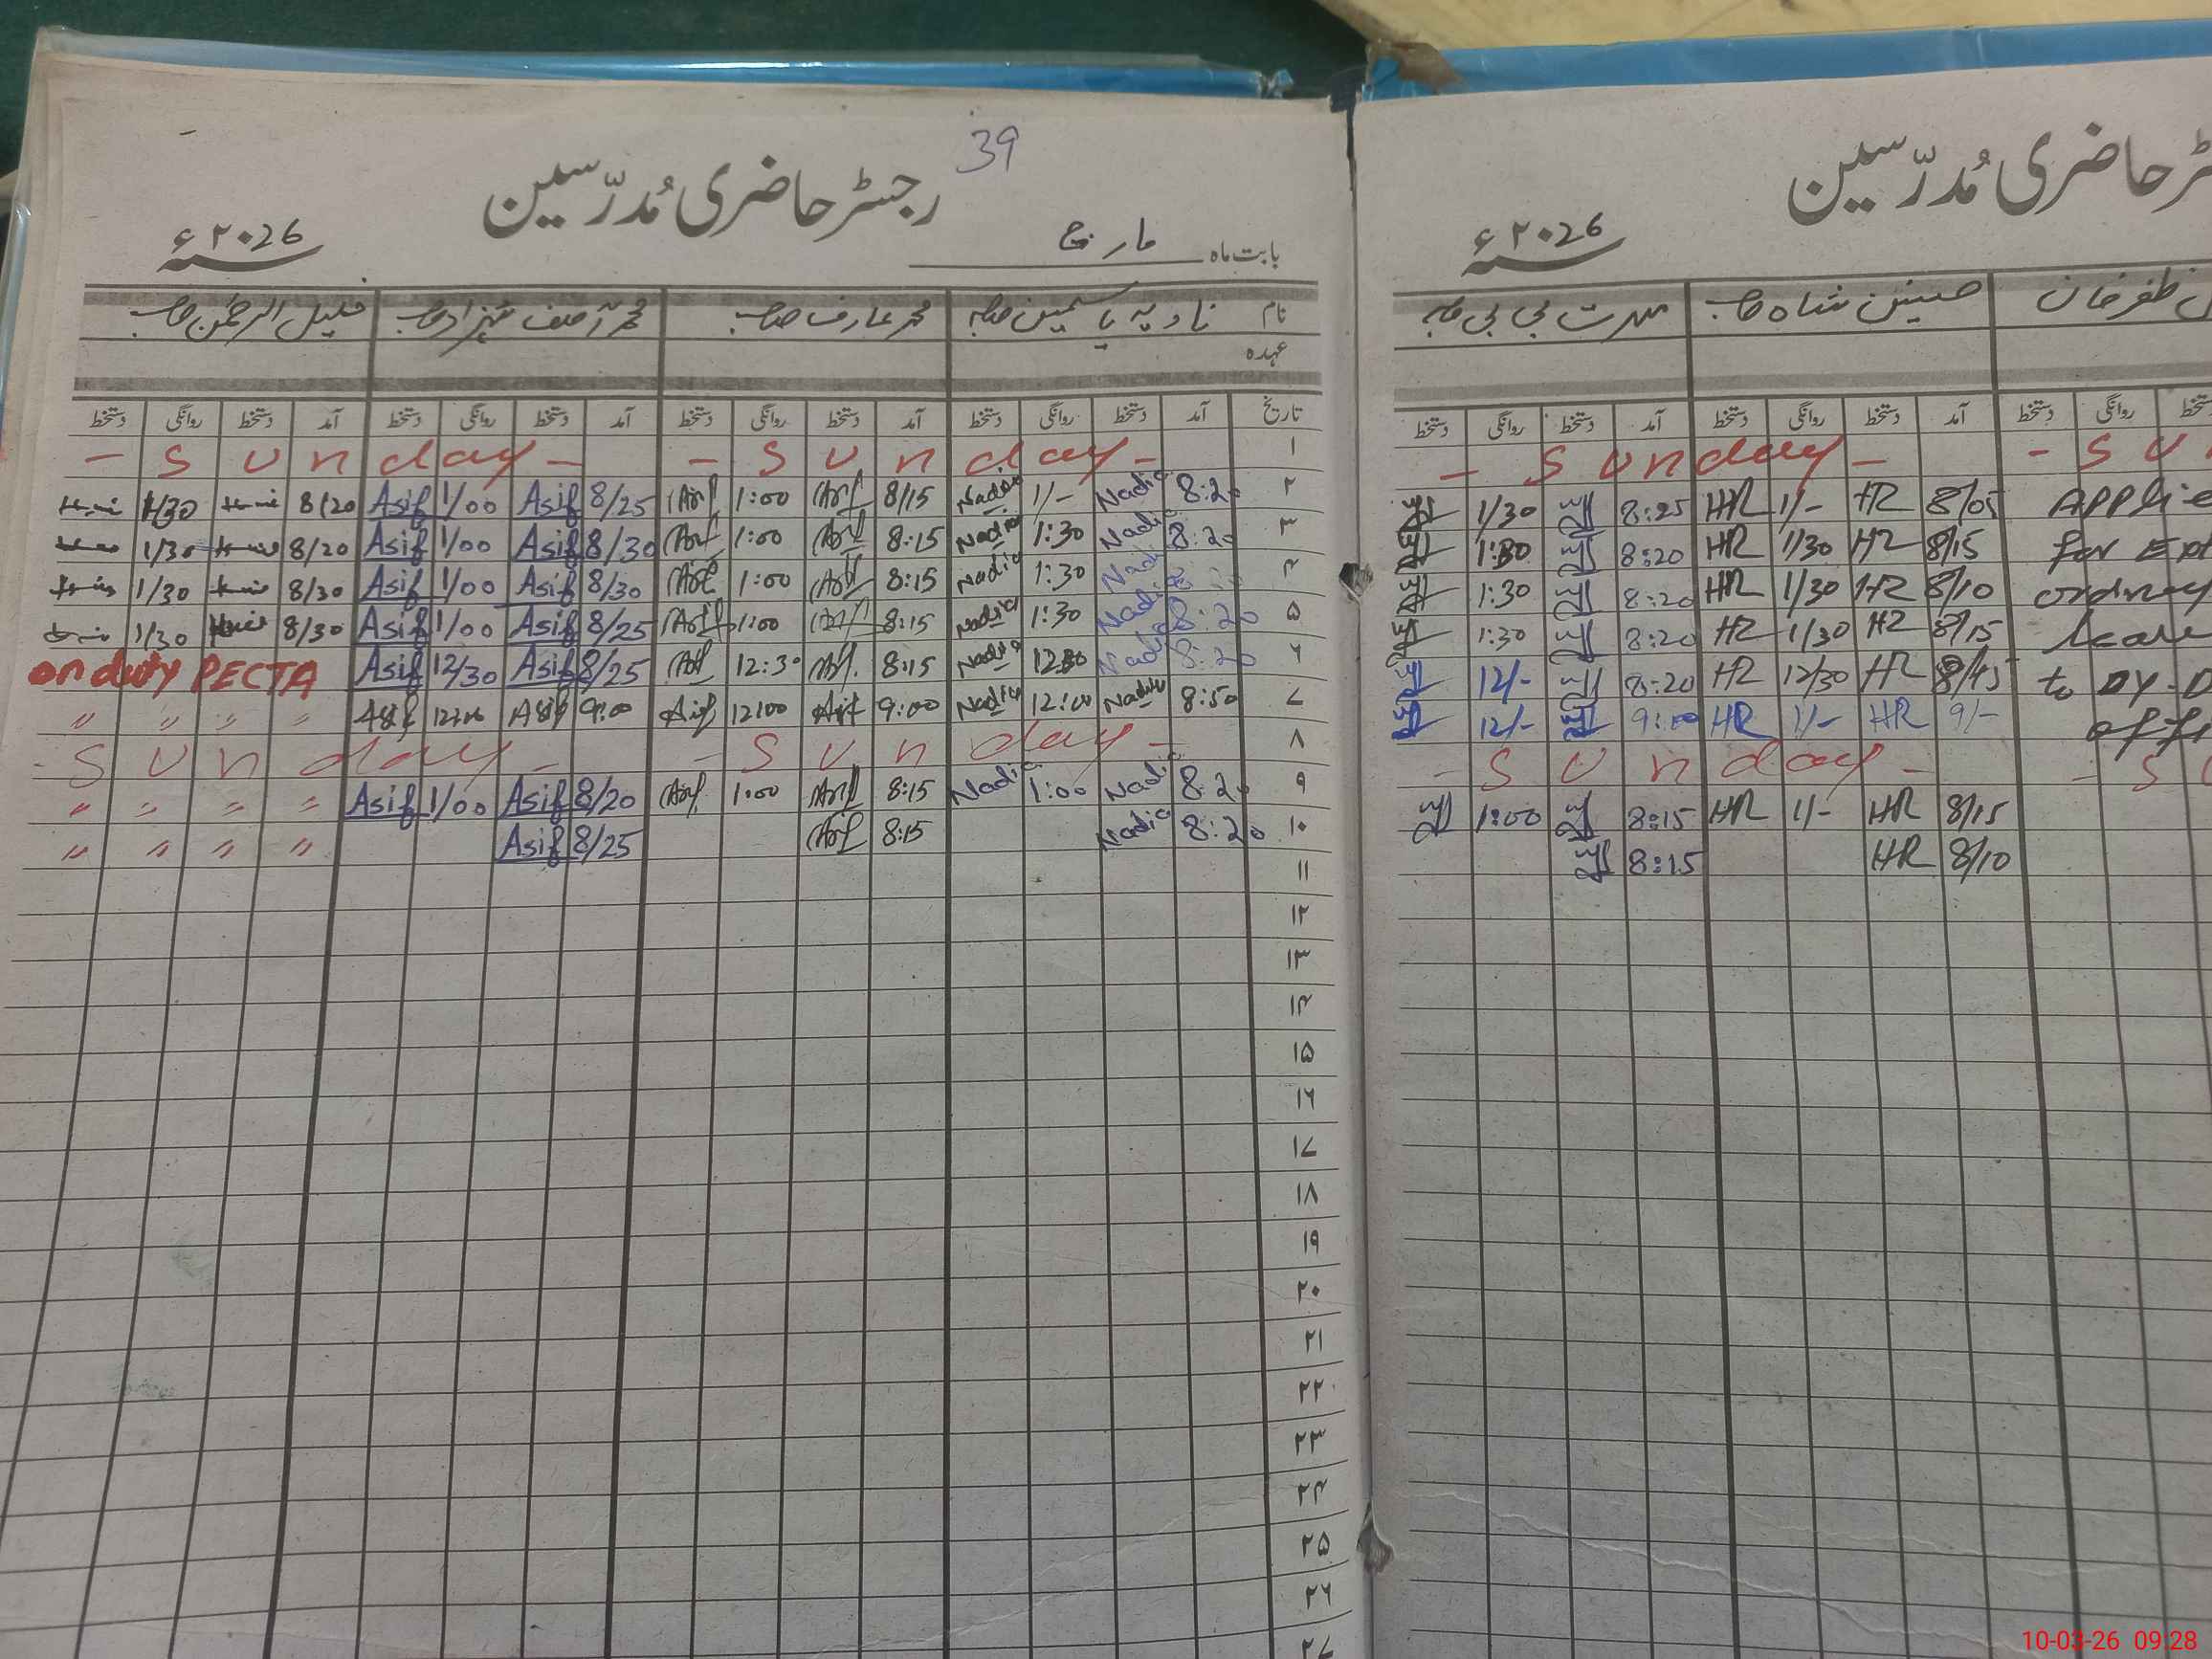 39
رجسٹر حاضری مُدرّسین
بابت ماہ مارچ سنہ ۲۰26ء
نام نادیہ یاسمین صاحبہ محمد عارف صاحب محمد آصف شہزاد صاحب خلیل الرحمٰن صاحب
عہدہ
تاریخ آمد دستخط روانگی دستخط آمد دستخط روانگی دستخط آمد دستخط روانگی دستخط آمد دستخط روانگی دستخط
- Sunday - - Sunday - ۱
1/30 8/20 Asif 1/00 Asif 8/25 Arif 1:00 Arif 8/15 Nadia 1/- Nadia 8:20 ۲
1/30 8/20 Asif 1/00 Asif 8/30 Arif 1:00 Arif 8:15 Nadia 1:30 Nadia 8:20 ۳
1/30 8/30 Asif 1/00 Asif 8/30 Arif 1:00 Arif 8:15 Nadia 1:30 Nadia ۴
1/30 8/30 Asif 1/00 Asif 8/25 Arif 1:00 Arif 8:15 Nadia 1:30 Nadia 8:20 ۵
on duty PECTA Asif 12/30 Asif 8/25 Arif 12:30 Arif 8:15 Nadia Nadia 8:20 ۶
" " " " Asif Asif 9:00 Arif 12:00 Arif 9:00 Nadia 12:00 Nadia 8:50 ۷
- Sunday - - Sunday - ۸
" " " " Asif 1/00 Asif 8/20 Arif 1:00 Arif 8:15 Nadia 1:00 Nadia 8:20 ۹
" " " " Asif 8/25 Arif 8:15 Nadia 8:20 ۱۰
۱۱
۱۲
۱۳
۱۴
۱۵
۱۶
۱۷
۱۸
۱۹
۲۰
۲۱
۲۲
۲۳
۲۴
۲۵
۲۶
۲۷
ٹر حاضری مُدرّسین
سنہ ۲۰26ء
ظفر خان حسنین شاہ صاحب بی بی صاحبہ
دستخط روانگی دستخط آمد دستخط روانگی دستخط آمد دستخط روانگی دستخط
- Sunday - - SU
1/30 8:25 HR 1/- HR 8/05 Applie
1:30 8:20 HR 1/30 HR 8/15 for Ext
1:30 8:20 HR 1/30 HR 8/10 ordinary
1:30 8:20 HR 1/30 HR 8/15 leave
12/- 8:20 HR 12/30 HR 8/45 to DY-D
12/- 9:00 HR 1/- HR 9/- offi
- Sunday - - S
1:00 8:15 HR 1/- HR 8/15
8:15 HR 8/10
10-03-26 09:28